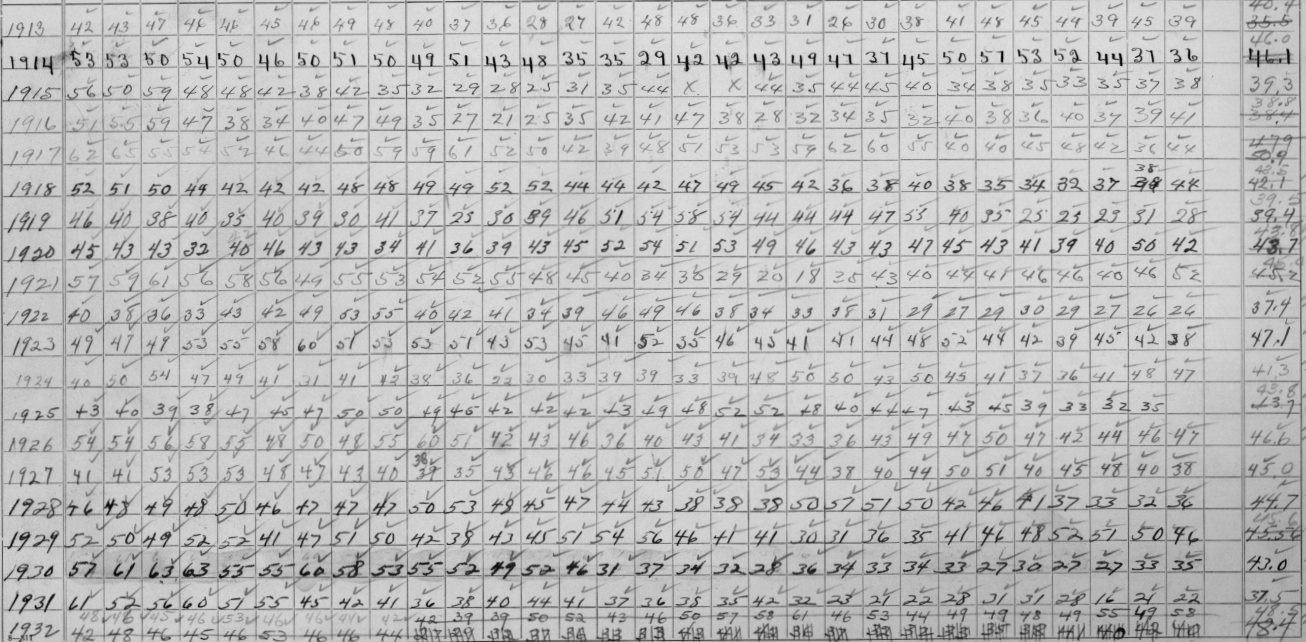 1913 42 43 47 46 46 45 46 49 48 40 37 36 28 27 42 48 48 36 33 31 26 30 38 41 48 45 44 39 45 39 40.4 35.5
46.0
1914 53 53 50 54 50 46 50 51 50 49 51 43 48 35 35 29 42 42 43 49 47 37 45 50 57 53 52 44 37 36 46.1
1915 56 50 59 48 48 42 38 42 35 32 29 28 25 31 35 44 X X 44 35 44 45 40 34 38 35 33 35 37 38 39.3
38.8
1916 51 55 59 47 38 34 40 47 49 35 27 21 25 35 42 41 47 38 28 32 34 35 32 40 38 36 40 37 39 41 38.4
1917 62 65 55 54 52 46 44 50 59 59 61 52 50 42 39 48 51 53 53 59 62 60 55 40 40 45 48 42 36 44 47.9
38
1918 52 51 50 49 42 42 42 48 48 49 49 52 52 44 44 42 47 49 45 42 36 38 40 38 35 34 32 37 44 42.1
39.5
1919 46 40 38 40 35 40 39 30 41 37 25 30 39 46 51 54 58 54 44 44 44 47 53 40 35 25 23 23 31 28 39.4
43.8
1920 45 43 43 32 40 46 43 43 34 41 36 39 43 45 52 54 51 53 49 46 43 43 47 45 43 41 39 40 50 42 43.7
1921 57 59 61 56 58 56 49 55 53 54 52 55 48 45 40 34 30 29 20 18 35 43 40 44 41 46 46 40 46 52 45.2
1922 40 38 36 33 43 42 49 53 55 40 42 41 34 39 46 49 46 38 34 33 38 31 29 27 29 30 29 27 26 26 37.4
1923 49 47 49 53 55 58 60 51 55 53 51 43 53 45 41 52 35 46 45 41 41 44 48 52 44 42 39 45 42 38 47.1
1924 40 50 54 47 49 41 31 41 42 38 36 22 30 33 39 39 33 39 48 50 50 43 50 45 41 37 36 41 48 47 41.3
43.8
1925 43 40 39 38 47 45 47 50 50 49 45 42 42 42 43 49 48 52 52 48 40 44 47 43 45 39 33 32 35 43.7
1926 54 54 56 58 55 48 50 48 55 60 51 42 43 46 36 40 43 41 34 33 36 43 49 47 50 47 42 44 46 47 46.6
38
1927 41 41 53 53 53 48 47 43 40 39 35 43 46 46 45 51 50 47 53 44 38 40 44 50 51 40 45 48 40 38 45.0
1928 46 48 49 48 50 46 47 47 47 50 53 48 45 47 44 43 38 38 38 50 57 51 50 42 46 41 37 33 32 36 44.7
1929 52 50 49 52 52 41 47 51 50 42 38 43 45 51 54 56 46 41 41 30 31 36 35 41 46 48 52 51 50 46 45.56
1930 57 61 63 63 55 55 60 58 53 55 52 49 52 46 31 37 34 32 28 36 34 33 34 33 27 30 27 27 33 35 43.0
1931 61 52 56 60 57 55 45 42 41 36 38 40 44 41 37 36 35 35 42 32 23 21 22 28 31 31 28 16 21 22 37.5
48 46 45 46 53 46 46 44 42 42 39 39 50 52 43 46 50 57 58 61 46 53 44 49 49 48 49 55 49 58 48.5
1932 42 48 46 45 46 53 46 46 44